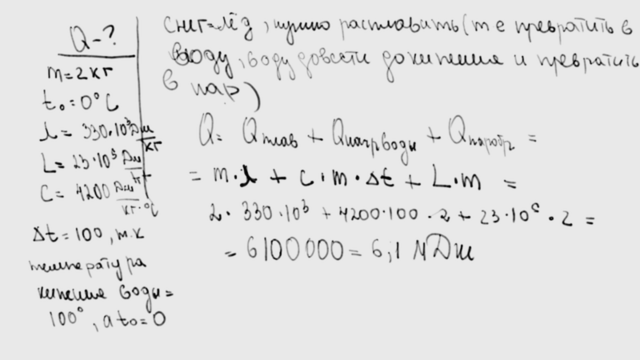 Q-?
m=2кг
t₀=0°C
λ=330·10³ Дж/кг
L=23·10³ Дж/кг
C=4200 Дж/кг·°C
Δt=100, т.к
температура
кипения воды=
100°, а t₀=0
снег=лёд, нужно расплавить (т е превратить в
воду, воду довести до кипения и превратить
в пар)
Q= Qплав + Qнагр воды + Qпарообр =
= m·λ + c·m·Δt + L·m =
2·330·10³ + 4200·100·2 + 23·10⁶·2 =
= 6100000 = 6,1 МДж